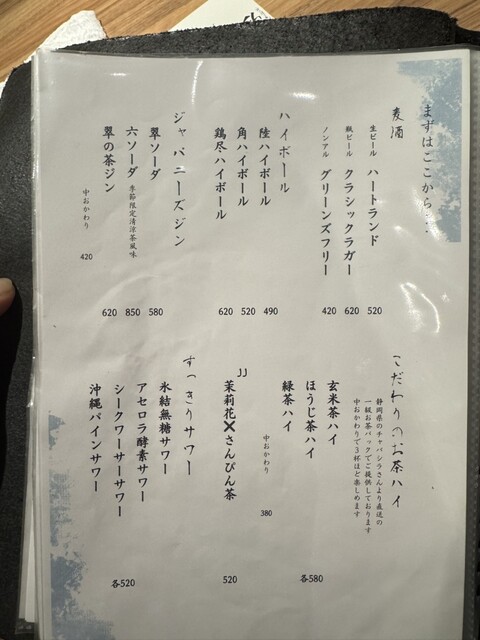 まずはここから…
麦酒
生ビール ハートランド 520
瓶ビール クラシックラガー 620
ノンアル グリーンズフリー 420
ハイボール
陸ハイボール 490
角ハイボール 520
鶏尽ハイボール 620
ジャパニーズジン
翠ソーダ 580
六ソーダ 季節限定清涼茶風味 850
翠の茶ジン 620
中おかわり 420
こだわりのお茶ハイ
静岡県のチャバシラさんより直送の
一級お茶パックでご提供しております
中おかわりで3杯ほど楽しめます
玄米茶ハイ
ほうじ茶ハイ
緑茶ハイ
各580
中おかわり 380
JJ
茉莉花×さんぴん茶 520
すっきりサワー
氷結無糖サワー
アセロラ酵素サワー
シークワーサーサワー
沖縄パインサワー
各520